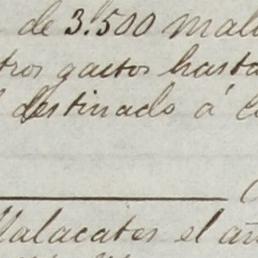 de 3.500 mala
tros gastos hasta
destinado á
Malacates el añ